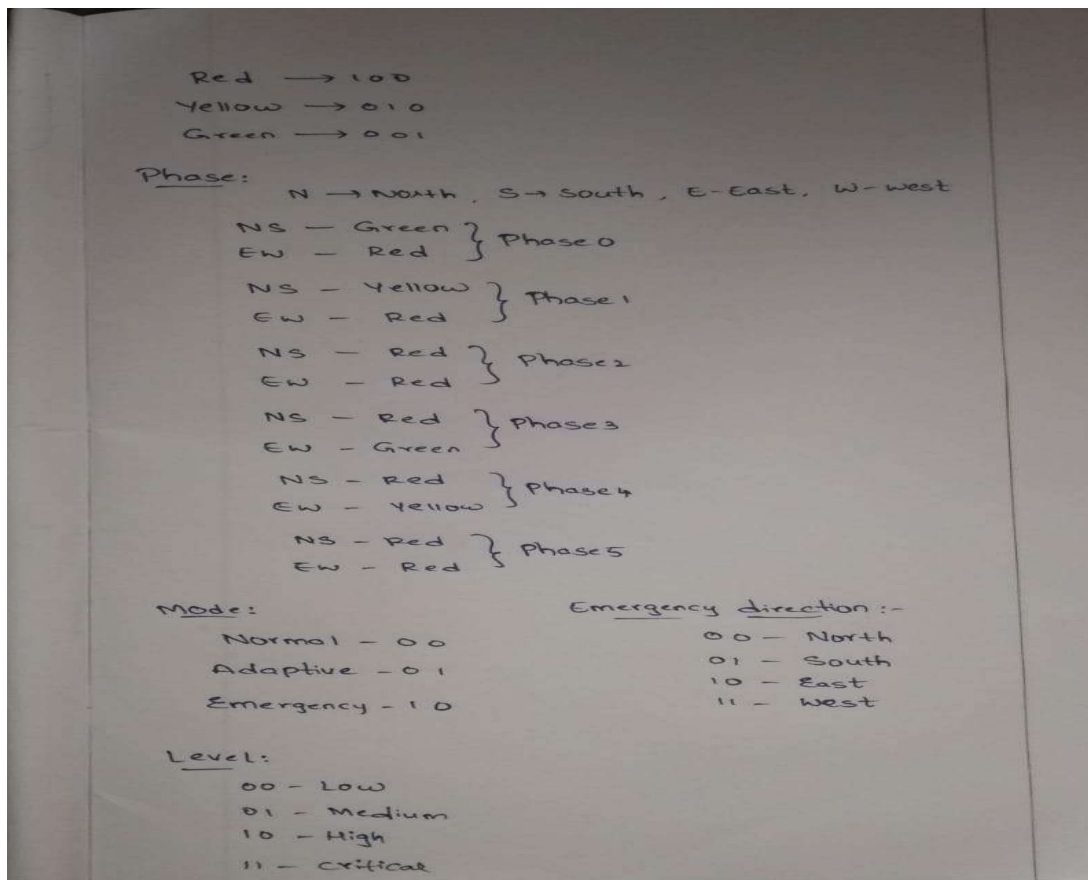 Red → 100
Yellow → 010
Green → 001
Phase:
N → North, S → South, E-East, W-West
NS - Green } Phase 0
EW - Red
NS - Yellow } Phase 1
EW - Red
NS - Red } Phase 2
EW - Red
NS - Red } Phase 3
EW - Green
NS - Red } Phase 4
EW - Yellow
NS - Red } Phase 5
EW - Red
Mode:
Normal - 00
Adaptive - 01
Emergency - 10
Emergency direction :-
00 - North
01 - South
10 - East
11 - West
Level:
00 - Low
01 - Medium
10 - High
11 - Critical